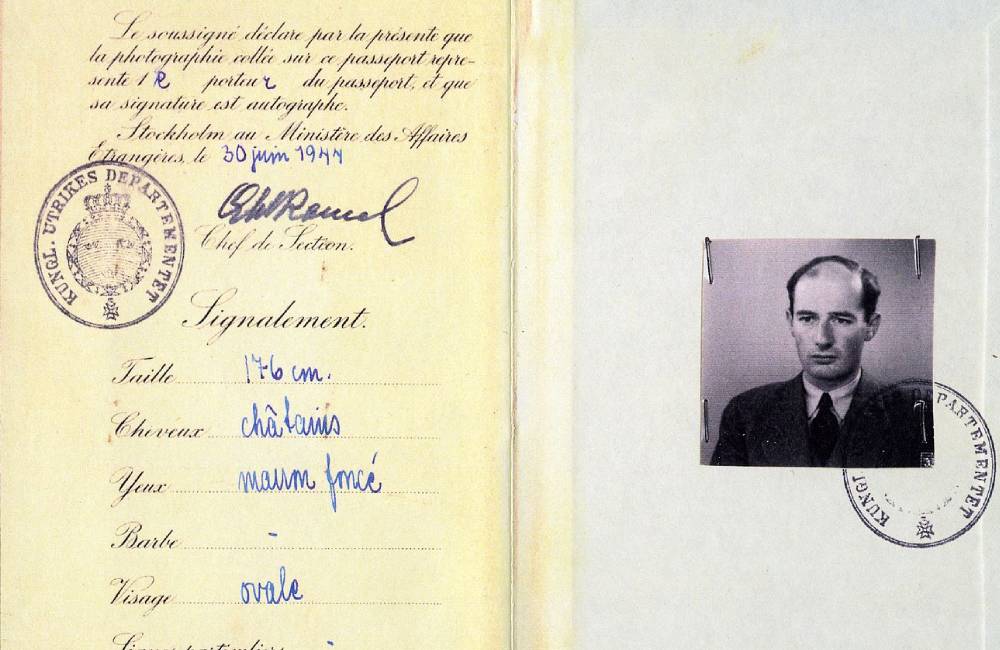 Le soussigné déclare par la présente que
la photographie collée sur ce passeport repré-
sente le porteur du passeport, et que
sa signature est autographe.
Stockholm au Ministère des Affaires
Étrangères, le 30 juin 1944
KUNGL. UTRIKES DEPARTEMENTET
Chef de Section.
Signalement.
Taille 176 cm.
Cheveux châtains
Yeux marron foncé
Barbe -
Visage ovale
Signes particuliers
KUNGL DEPARTEMENTET